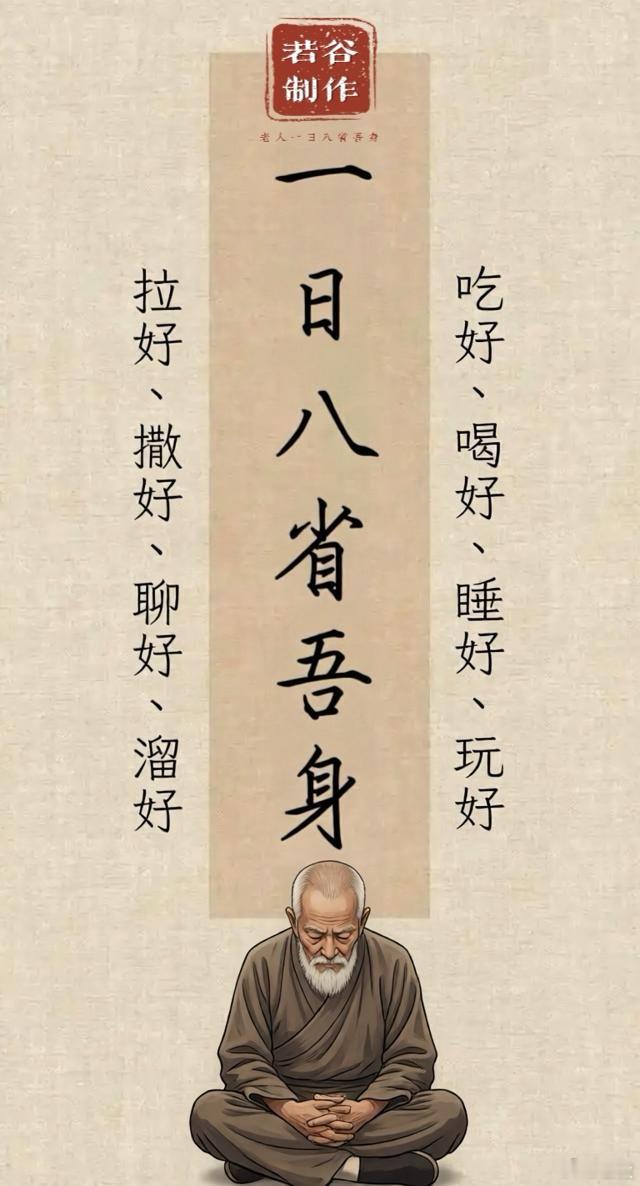 若谷
制作
老人一日八省吾身
一日八省吾身
吃好、喝好、睡好、玩好
拉好、撒好、聊好、溜好